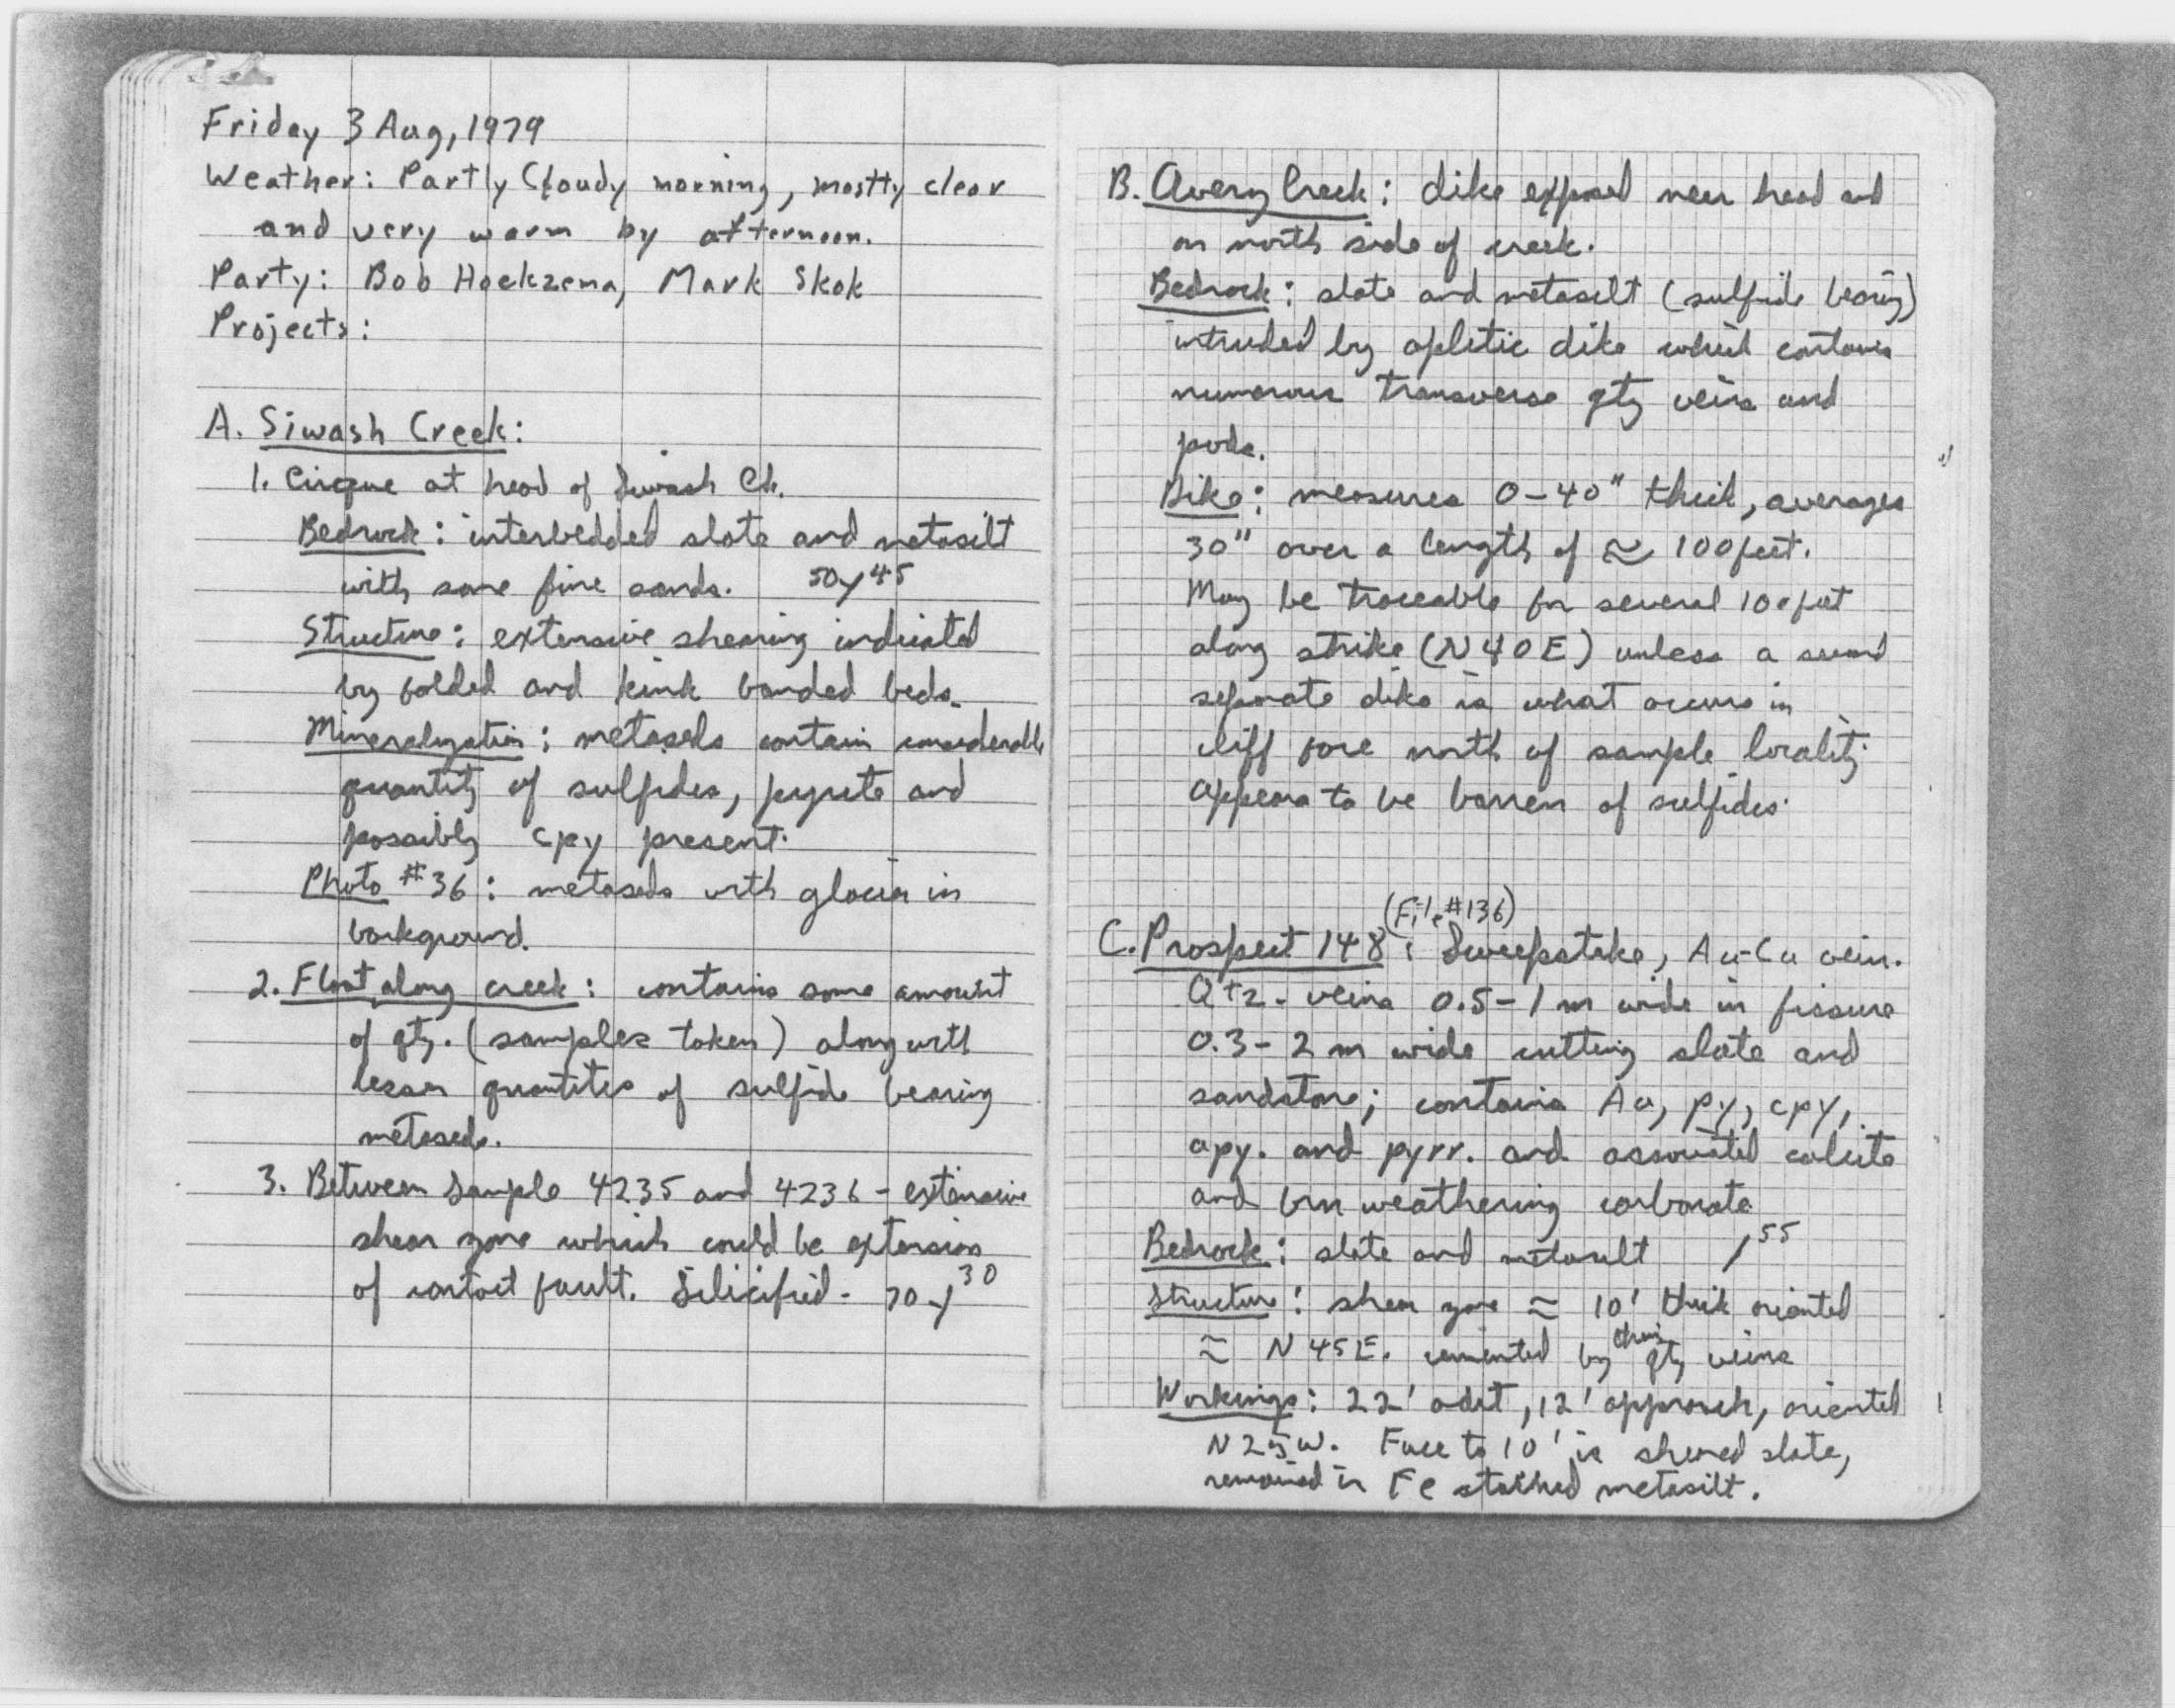 Friday 3 Aug, 1979
Weather: Partly Cloudy morning, mostly clear
and very warm by afternoon.
Party: Bob Hoekzema, Mark Skok
Projects:
A. Siwash Creek:
1. Cirque at head of Siwash Ck.
Bedrock: interbedded slate and metasilt
with some fine sands. 50 45
Structure: extensive shearing indicated
by folded and kink banded beds.
Mineralyzation: metaseds contain considerable
quantity of sulfides, pyrite and
possibly cpy present.
Photo #36: metaseds with glacier in
background.
2. Float along creek: contains some amount
of qtz. (samples taken) along with
lesser quantites of sulfide bearing
metaseds.
3. Between Sample 4235 and 4236 - extensive
shear zone which could be extension
of contact fault. Silicified - 70 30
B. Avery Creek: dike exposed near head and
on north side of creek.
Bedrock: slate and metasilt (sulfide bearing)
intruded by aplitic dike which contains
numerous transverse qtz veins and
pods.
Dike: measures 0-40" thick, averages
30" over a length of ≈ 100 feet.
May be traceable for several 100 feet
along strike (N40E) unless a second
separate dike is what occurs in
cliff face north of sample locality.
Appears to be barren of sulfides.
(File #136)
C. Prospect 148: Sweepstake, Au-Cu vein.
Qtz - veins 0.5-1 m wide in fissure
0.3-2 m wide cutting slate and
sandstone; contains Au, py, cpy,
apy. and pyrr. and associated calcite
and brn weathering carbonate
Bedrock: slate and metasilt 55
Structure: shear zone ≈ 10' thick oriented
≈ N45E. cemented by thin qtz veins
Workings: 22' adit, 12' approach, oriented
N25W. Face to 10' is sheared slate,
remained is Fe stained metasilt.